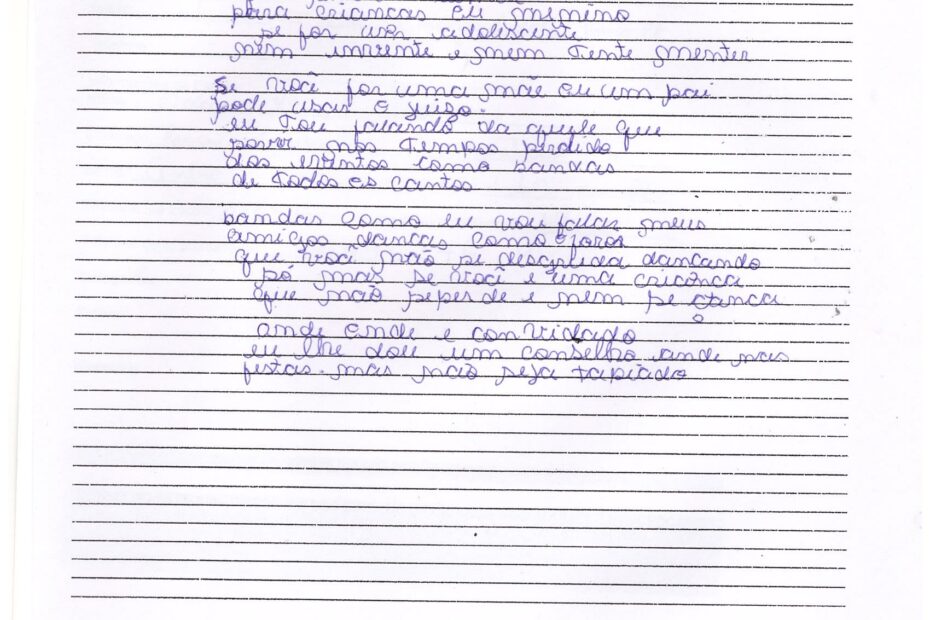 para crianças eu menino
se for um adolescente
nem invente e nem tente menter
se você for uma mãe ou um pai
pode usar o juizo.
eu tou falando da quele que
nos tempos perdido
dos eventos como bandas
de todos os cantos
bandas como eu vou falar meus
amigos danças como foror
que você não se descuida dançando
só mas se você e uma criança
que não peperde e nem se cança
ande onde e convidado
eu lhe dou um conselho ande nas
festas. mas não seja tapiado